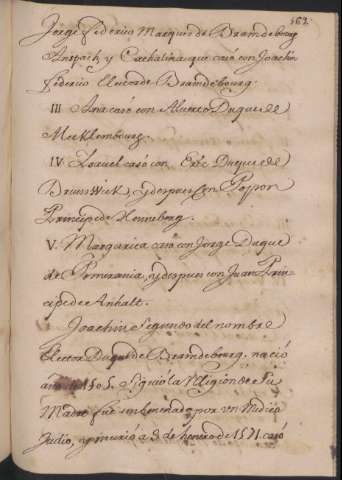 163.
Jorge Federico Marques de Bramdebourg
Anspach y Cathalina que casó con Joachin
Federico Elector de Bramdebourg.
III Ana casó con Alverto Duque de
Mecklembourg.
IV Isavel casó con Eric Duque de
Brunswick, y despues con Popon
Principe de Henneberg.
V. Margarita casó con Jorge Duque
de Pomerania, y despues con Juan Prin-
cipe de Anhalt.
Joachin Segundo del nombre
Elector Duque de Bramdebourg. nació
año de 1505. Siguió la Religion de Su
Madre fue embenenado por un Medico
Judio, y murió a 3 de henero de 1571 casó